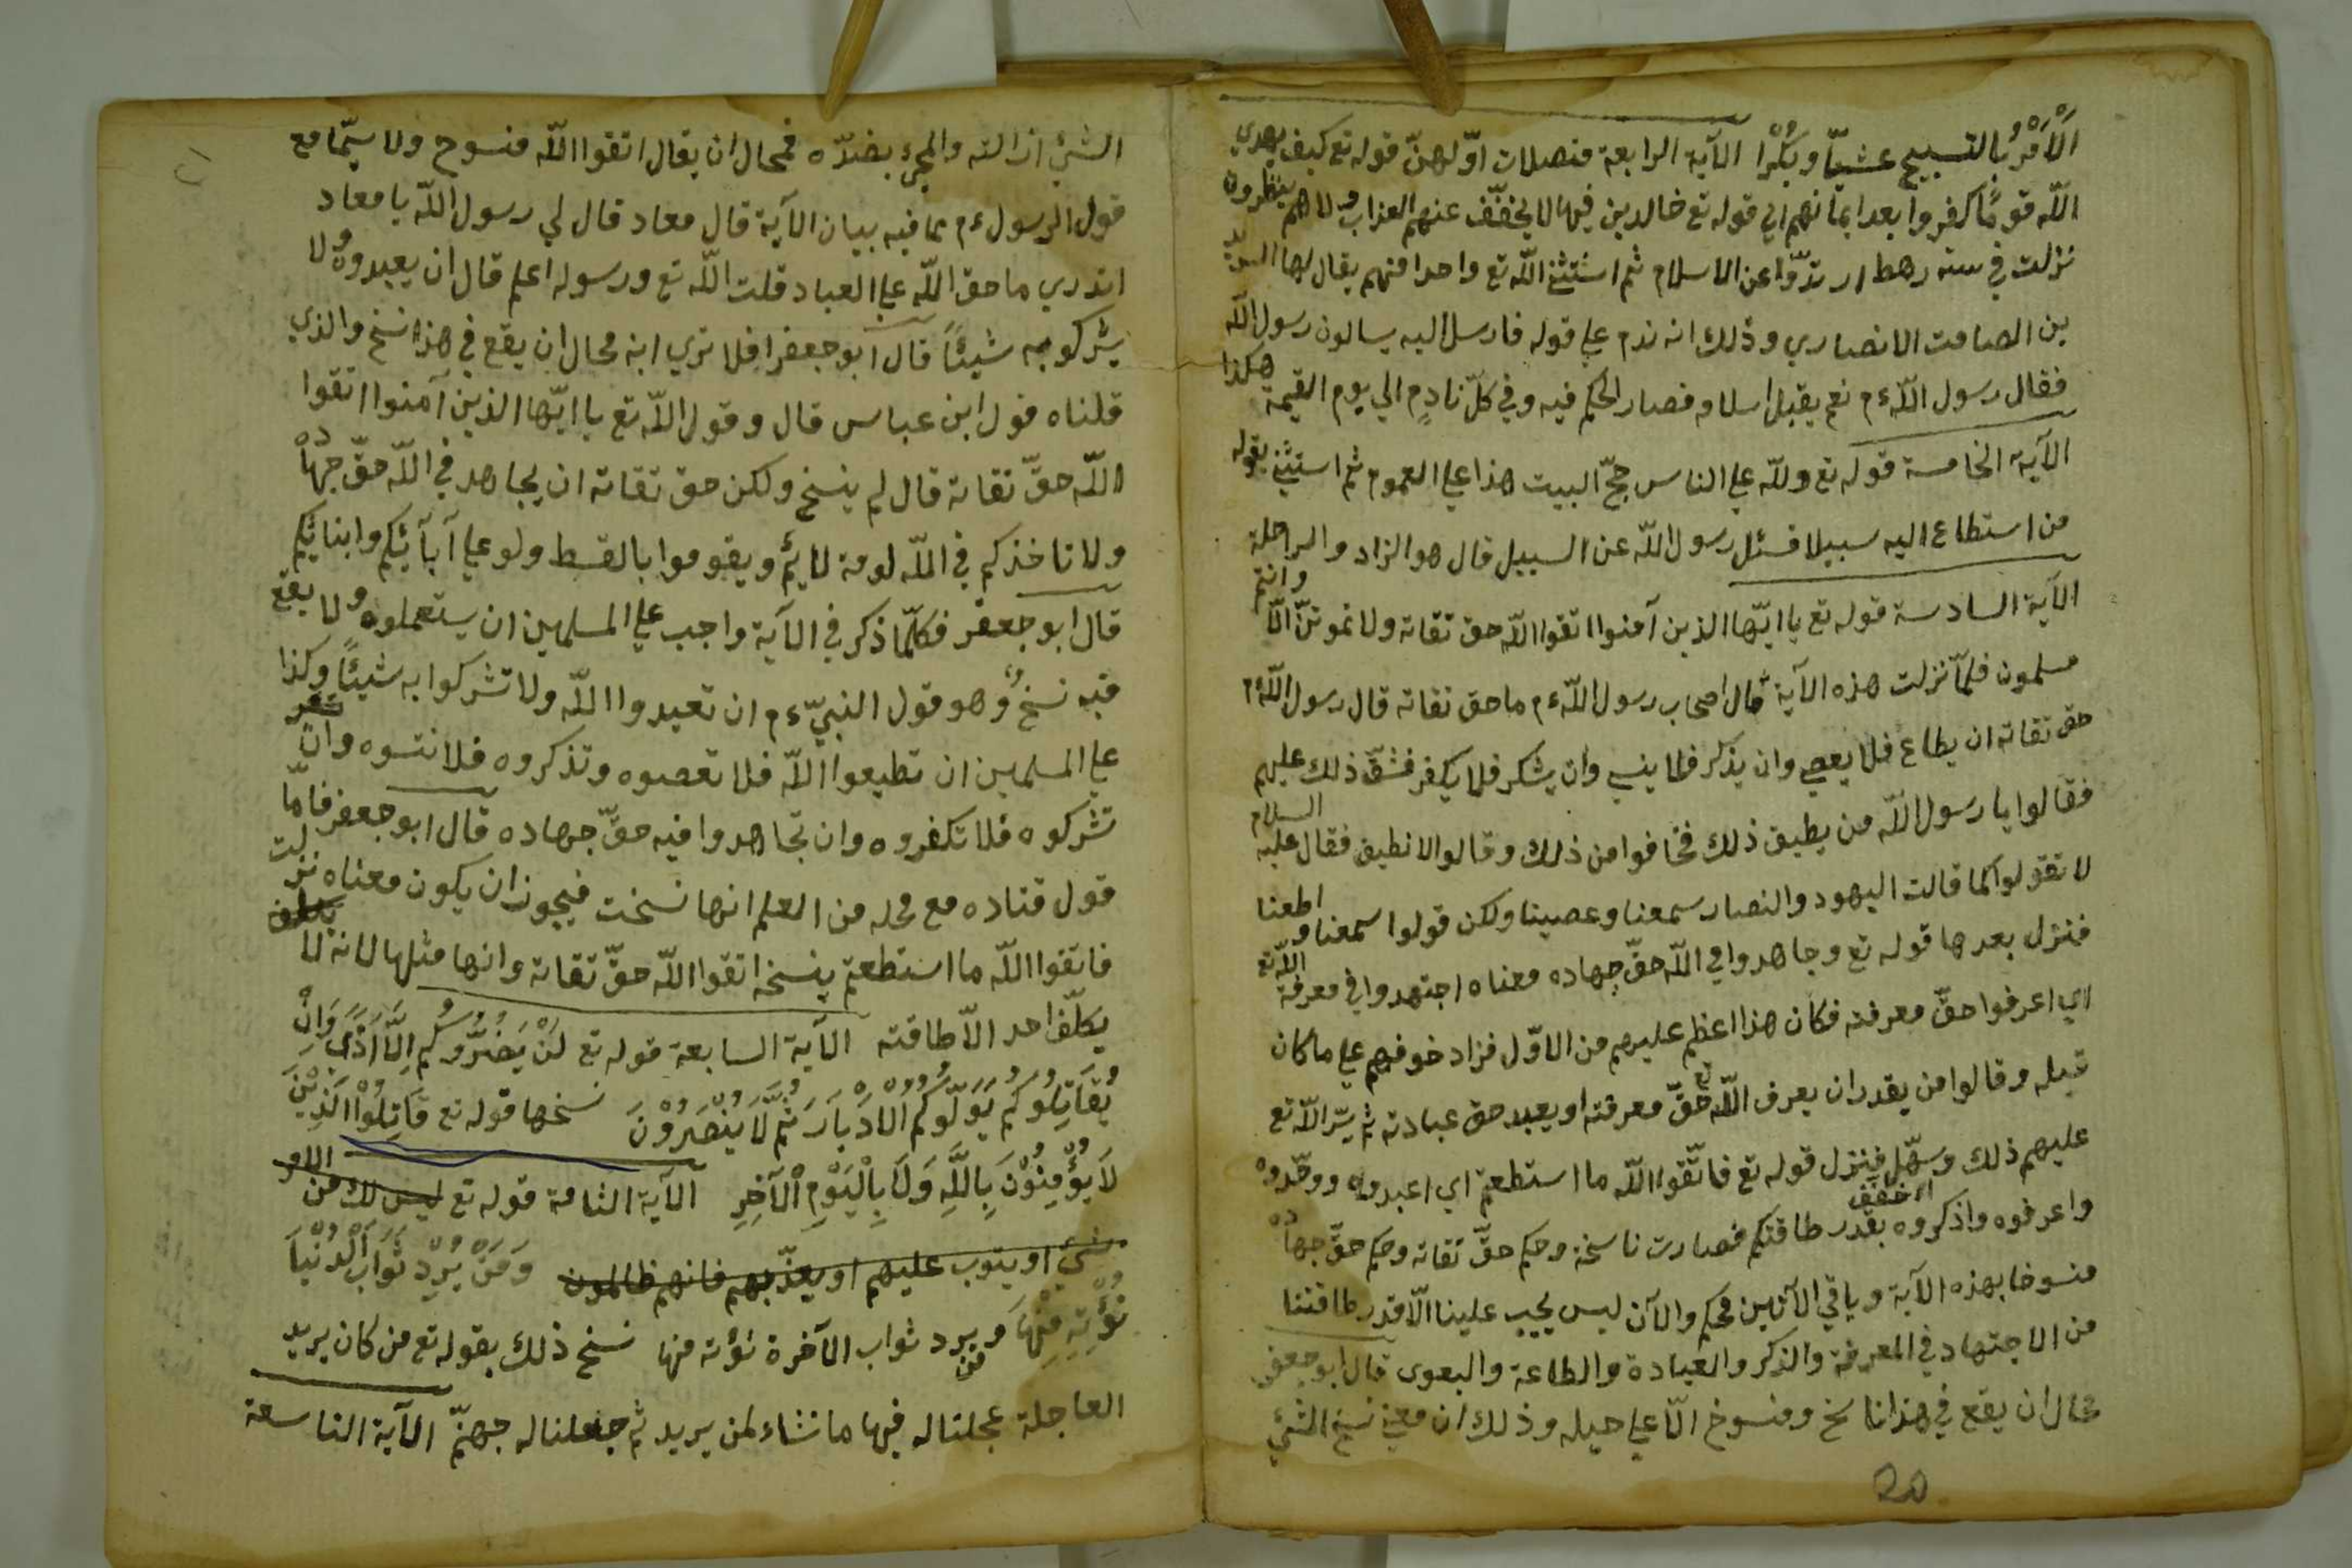 الْأَمْرُ بالتسبيح عشيّاً وبُكْرًا الآية الرابعة متصلات اوّلهنّ قوله تع كيف يهدي
اللّه قومًا كفروا بعد ايمانهم الي قوله تع خالدين فيها لا يخفّف عنهم العذاب ولا هم ينظرون
نزلت في ستة رهط ارتدّوا عن الاسلام ثم استثني اللّه تع واحدا منهم يقال لها
بن الصامت الانصاري وذلك انه ندم علي قوله فارسل اليه يسالون رسول اللّه
فقال رسول اللّه ءم نعم يقبل اسلامه فصار الحكم فيه وفي كلّ نادمٍ الي يوم القيمة هكذا
الآية الخامسة قوله تع وللّه علي الناس حجّ البيت هذا علي العموم ثم استثني بقوله
من استطاع اليه سبيلا فسئل رسول اللّه عن السبيل قال هو الزاد والراحلة
الآية السادسة قوله تع يا ايّها الذين آمنوا اتقوا اللّه حق تقاته ولا تموتنّ الّا وانتم
مسلمون فلمّا نزلت هذه الآية قال اصحاب رسول اللّه ءم ما حق تقاته قال رسول اللّه ءم
حق تقاته ان يطاع فلا يعصي وان يذكر فلا ينسي وان يشكر فلا يكفر فشقّ ذلك عليهم
فقالوا يا رسول اللّه من يطيق ذلك فخافوا من ذلك وقالوا لا نطيق فقال عليه السلام
لا تقولوا كما قالت اليهود والنصار سمعنا وعصينا ولكن قولوا سمعنا واطعنا
فنزل بعدها قوله تع وجاهدوا في اللّه حقّ جهاده معناه اجتهدوا في معرفة اللّه تع
اي اعرفوا حقّ معرفته فكان هذا اعظم عليهم من الاوّل فزاد خوفهم علي ما كان
قبله وقالوا من يقدر ان يعرف اللّه تع حقّ معرفته او يعبد حق عبادته ثم يسّر اللّه تع
عليهم ذلك وسهّل فنزل قوله تع فاتّقوا اللّه ما استطعتم اي اعبدوه ووحّدوه
واعرفوه واذكروه بقدر طاقتكم فصارت ناسخة وحكم حقّ تقاته وحكم حقّ جهاده
منسوخا بهذه الآية وباقي الآيتين محكم والآن ليس يجب علينا الّا قدر طاقتنا
من الاجتهاد في المعرفة والذكر والعبادة والطاعة قال ابو جعفر
محال ان يقع في هذا ناسخ ومنسوخ الّا علي حيله وذلك ان معني نسخ الشئي
20
الشئي ازالته والمجئ بضدّه فمحال ان يقال اتقوا اللّه منسوخ ولا سيّما مع
قول الرسول ءم مما فيه بيان الآية قال معاد قال لي رسول اللّه يا معاد
اتدري ما حق اللّه علي العباد قلت اللّه تع ورسوله اعلم قال ان يعبدوه ولا
يشركو به شيئًا قال ابو جعفر افلا تري انه محال ان يقع في هذا نسخ والذي
قلناه قول ابن عباس قال وقول اللّه تع يا ايّها الذين آمنوا اتقوا
اللّه حقّ تقاته قال لم ينسخ ولكن حق تقاته ان يجاهد في اللّه حقّ جهاده
ولا تاخذكم في اللّه لومة لايم ويقوموا بالقسط ولو علي آبآئكم وابنائكم
قال ابو جعفر فكلّما ذكر في الآية واجب علي المسلمين ان يستعملوه ولا يقع
فيه نسخ وهو قول النبيّ ءم ان تعبدوا اللّه ولا تشركوا به شيئًا وكذا
علي المسلمين ان تطيعوا اللّه فلا تعصوه وتذكروه فلا تنسوه وان
تشركوه فلا تكفروه وان تجاهدوا فيه حقّ جهاده قال ابو جعفر فامّا
قول قتاده مع محله من العلم انها نسخت فيجوز ان يكون معناه نزلت
فاتقوا اللّه ما استطعتم بنسخه اتقوا اللّه حقّ تقاته وانها مثلها لانه لا
يكلّف احد الّا طاقته الآية السابعة قوله تع لَنْ يَضُرُّوكُم اِلَّا اَذًي وَاِنْ
يُقَاتِلُوكُمْ يُوَلُّوكُمُ الْاَدْبَارَ ثُمَّ لَا يُنْصَرُوْنَ نسخها قوله تع قَاتِلُوْا الَّذِيْنَ
لَا يُؤْمِنُوْنَ بِاللَّهِ وَلَا بِالْيَوْمِ الْآخِرِ الآية الثامة قوله تع ليس لك من الامر
شئي او يتوب عليهم او يعذّبهم فانهم ظالمون وَمَنْ يُرِدْ ثَوَابَ الْدُنْيَا
نُؤْتِهِ مِنْهَا ومن يرد ثواب الآخرة نؤته منها نسخ ذلك بقوله تع من كان يريد
العاجلة عجلنا له فيها ما نشاء لمن يريد ثم جعلنا له جهنّم الآية التاسعة